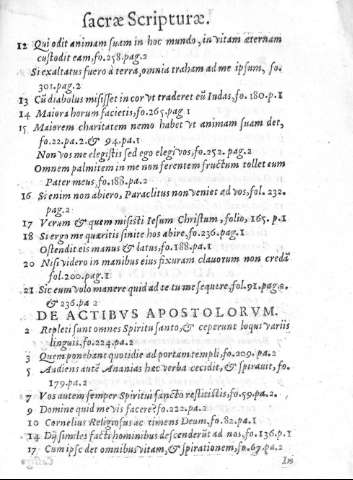 sacræ Scripturæ.
12 Qui odit animam suam in hoc mundo, in vitam æternam
custodit eam, fo.258.pag.2
Si exaltatus fuero à terra, omnia traham ad me ipsum, fo.
301.pag.2
13 Cũ diabolus misisset in cor vt traderet eũ Iudas, fo.180.p.1
14 Maiora horum facietis, fo.265.pag 1
15 Maiorem charitatem nemo habet vt animam suam det,
fo.22.pa.2.& 94.pa.1
Non vos me elegistis sed ego elegi vos, fo.252. pag.2
Omnem palmitem in me non ferentem fructum tollet eum
Pater meus, fo.188.pa.2
16 Si enim non abiero, Paraclitus non veniet ad vos, fol. 232.
pag.2
17 Verum & quem misisti Iesum Christum, folio, 165. p.1
18 Si ergo me quæritis sinite hos abire, fo.236.pag.1
Ostendit eis manus & latus, fo.188.pa.1
20 Nisi videro in manibus eius fixuram clauorum non credã
fol.200.pag.1
21 Sic eum volo manere quid ad te tu me sequere, fol.91.pag.2.
& 236.pa 2
DE ACTIBVS APOSTOLORVM.
2 Repleti sunt omnes Spiritu santo, & ceperunt loqui variis
linguis. fo.224.pa.2
3 Quem ponebant quotidie ad portam templi, fo.209. pa.2
5 Audiens autẽ Ananias hæc verba cecidit, & spirauit, fo.
179.pa.2
7 Vos autem semper Spiritui sancto restitistis, fo.59.pa.2.
9 Domine quid me vis facere? fo.222.pa.2
10 Cornelius Religiosus ac timens Deum, fo.82.pa.1
14 Dij similes facti hominibus descenderũt ad nos, fo.136.p.1
17 Cum ipse det omnibus vitam, & spirationem, fo.67.pa.2